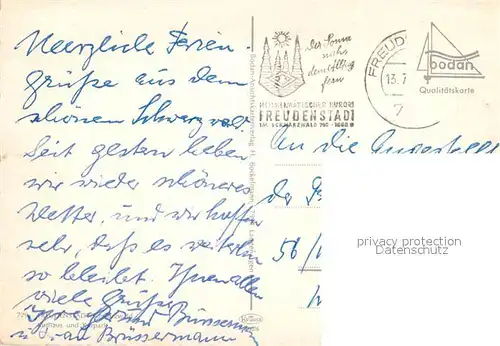 Herzliche Ferien-
grüße aus dem
schönen Schwarzwald.
Seit gestern haben
wir wieder schöneres
Wetter, und wir hoffen
sehr, daß es weiterhin
so bleibt. Ihnen allen
viele Grüße
Brüssermann
u. Frau Brüssermann
Der Sonne
nahe
dem Alltag
fern
HEILKLIMATISCHER KURORT
FREUDENSTADT
IM SCHWARZWALD 740-1000 M
FREUD
13.7
7
bodan
Qualitätskarte
An die
der
56/
privacy protection
Datenschutz